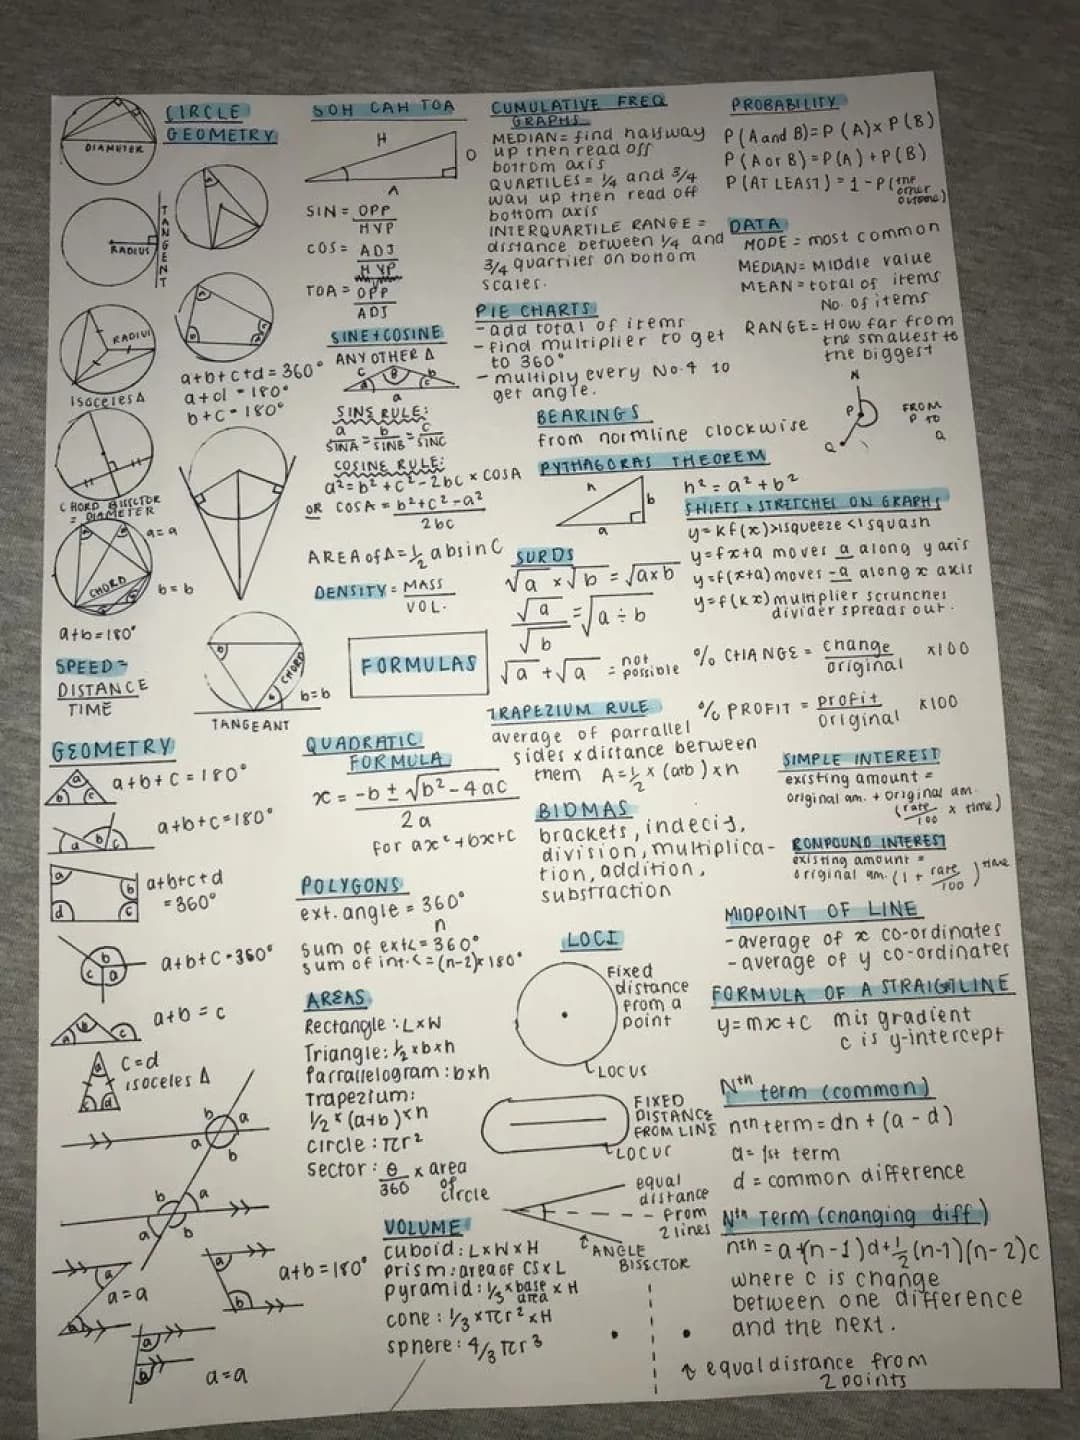 CIRCLE
GEOMETRY
DIAMETER
RADIUS
TANGENT
RADIUS
ISOCELES Δ
a+b+c+d=360°
a+d=180°
b+c=180°
CHORD BISSCTOR
= DIAMETER
a=a
CHORD
b=b
a+b=180°
CHORD
b=b
TANGEANT
SPEED=
DISTANCE
TIME
GEOMETRY
a+b+c=180°
a+b+c=180°
a+b+c+d
=360°
a+b+c=360°
a+b=c
c=d
isoceles Δ
a+b=180°
a=a
a=a
SOH CAH TOA
H
O
A
SIN = OPP
HYP
COS = ADJ
HYP
TOA = OPP
ADJ
SINE+COSINE
ANY OTHER Δ
SINE RULE:
a/SINA = b/SINB = c/SINC
COSINE RULE:
a²=b²+c²-2bc×COSA
OR COSA = b²+c²-a²
2bc
AREA of Δ=½ absinC
DENSITY = MASS
VOL.
FORMULAS
QUADRATIC
FORMULA
x = -b ± √b²-4ac
2a
for ax²+bx+c
POLYGONS
ext. angle = 360°
n
sum of ext< = 360°
sum of int.< = (n-2)×180°
AREAS
Rectangle: L×W
Triangle: ½×b×h
Parrallelogram: b×h
Trapezium:
½×(a+b)×h
circle: πr²
sector: θ/360 × area
of
circle
VOLUME
cuboid: L×W×H
prism: area of CS×L
pyramid: ⅓×base area×H
cone: ⅓×πr²×H
sphere: 4/3πr³
CUMULATIVE FREQ
GRAPHS
MEDIAN= find halfway
up then read off
bottom axis
QUARTILES = ¼ and ¾
way up then read off
bottom axis
INTERQUARTILE RANGE =
distance between ¼ and
¾ quartiles on bottom
scales.
PIE CHARTS
-add total of items
-find multiplier to get
to 360°
-multiply every No. to
get angle.
BEARINGS
from normline clockwise
N
P
Q
FROM
P TO
Q
PYTHAGORAS THEOREM
h
b
a
h²=a²+b²
SURDS
√a × √b = √a×b
√a/√b = √a÷b
√a + √a = not
possible
TRAPEZIUM RULE
average of parrallel
sides × distance between
them A=½×(a+b)×h
BIDMAS
brackets, indecis,
division, multiplica-
tion, addition,
substraction
LOCI
Fixed
distance
from a
point
LOCUS
FIXED
DISTANCE
FROM LINE
LOCUS
equal
distance
from
2 lines
ANGLE
BISSCTOR
PROBABILITY
P(A and B)=P(A)×P(B)
P(A or B)=P(A)+P(B)
P(AT LEAST)=1-P(the
other
outcome)
DATA
MODE = most common
MEDIAN= Middle value
MEAN = total of items
No. of items
RANGE= How far from
the smallest to
the biggest
SHIFTS + STRETCHEL ON GRAPHS
y=kf(x)>1squeeze<1squash
y=fx+a moves a along y axis
y=f(x+a)moves -a along x axis
y=f(kx)multiplier scrunches
divider spreads out.
% CHANGE = change/original ×100
% PROFIT = profit/original ×100
SIMPLE INTEREST
existing amount =
original am. + original am.
(rate/100 × time)
COMPOUND INTEREST
existing amount =
original am. (1 + rate/100)time
MIDPOINT OF LINE
-average of x co-ordinates
-average of y co-ordinates
FORMULA OF A STRAIGTLINE
y=mx+c m is gradient
c is y-intercept
Nth term (common)
nth term = dn + (a-d)
a= 1st term
d = common difference
Nth Term (changing diff)
nth = a+(n-1)d+½(n-1)(n-2)c
where c is change
between one difference
and the next.
equal distance from
2 points